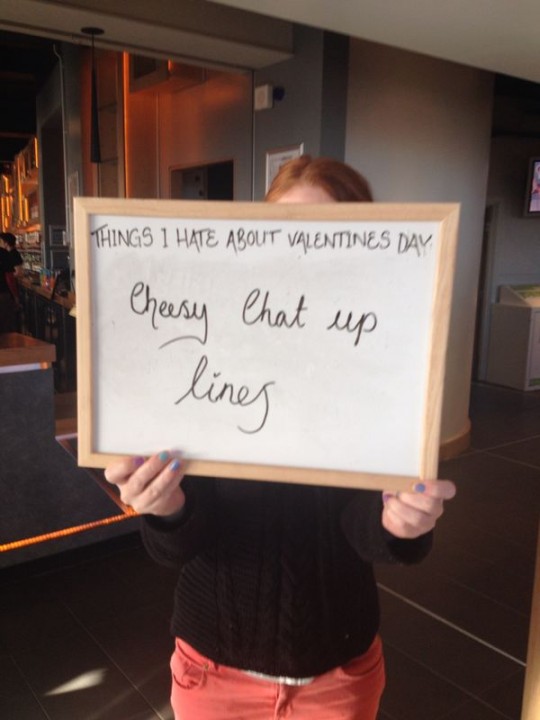 THINGS I HATE ABOUT VALENTINES DAY
Cheesy Chat up
lines